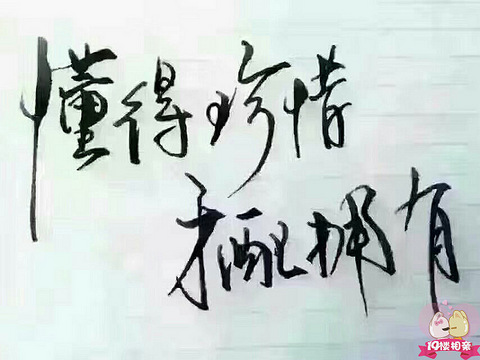 懂得珍惜
才配拥有
19楼相亲